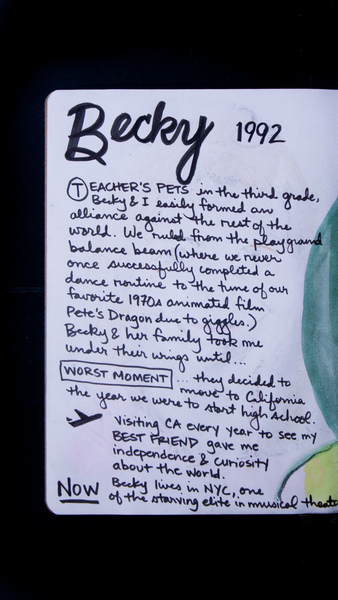 Becky 1992
TEACHER'S PETS in the third grade,
Becky & I easily formed an
alliance against the rest of the
world. We ruled from the playground
balance beam (where we never
once successfully completed a
dance routine to the tune of our
favorite 1970s animated film
Pete's Dragon due to giggles.)
Becky & her family took me
under their wings until...
WORST MOMENT ... they decided to
move to California
the year we were to start high school.
Visiting CA every year to see my
BEST FRIEND gave me
independence & curiosity
about the world.
Now Becky lives in NYC, one
of the starving elite in musical theate